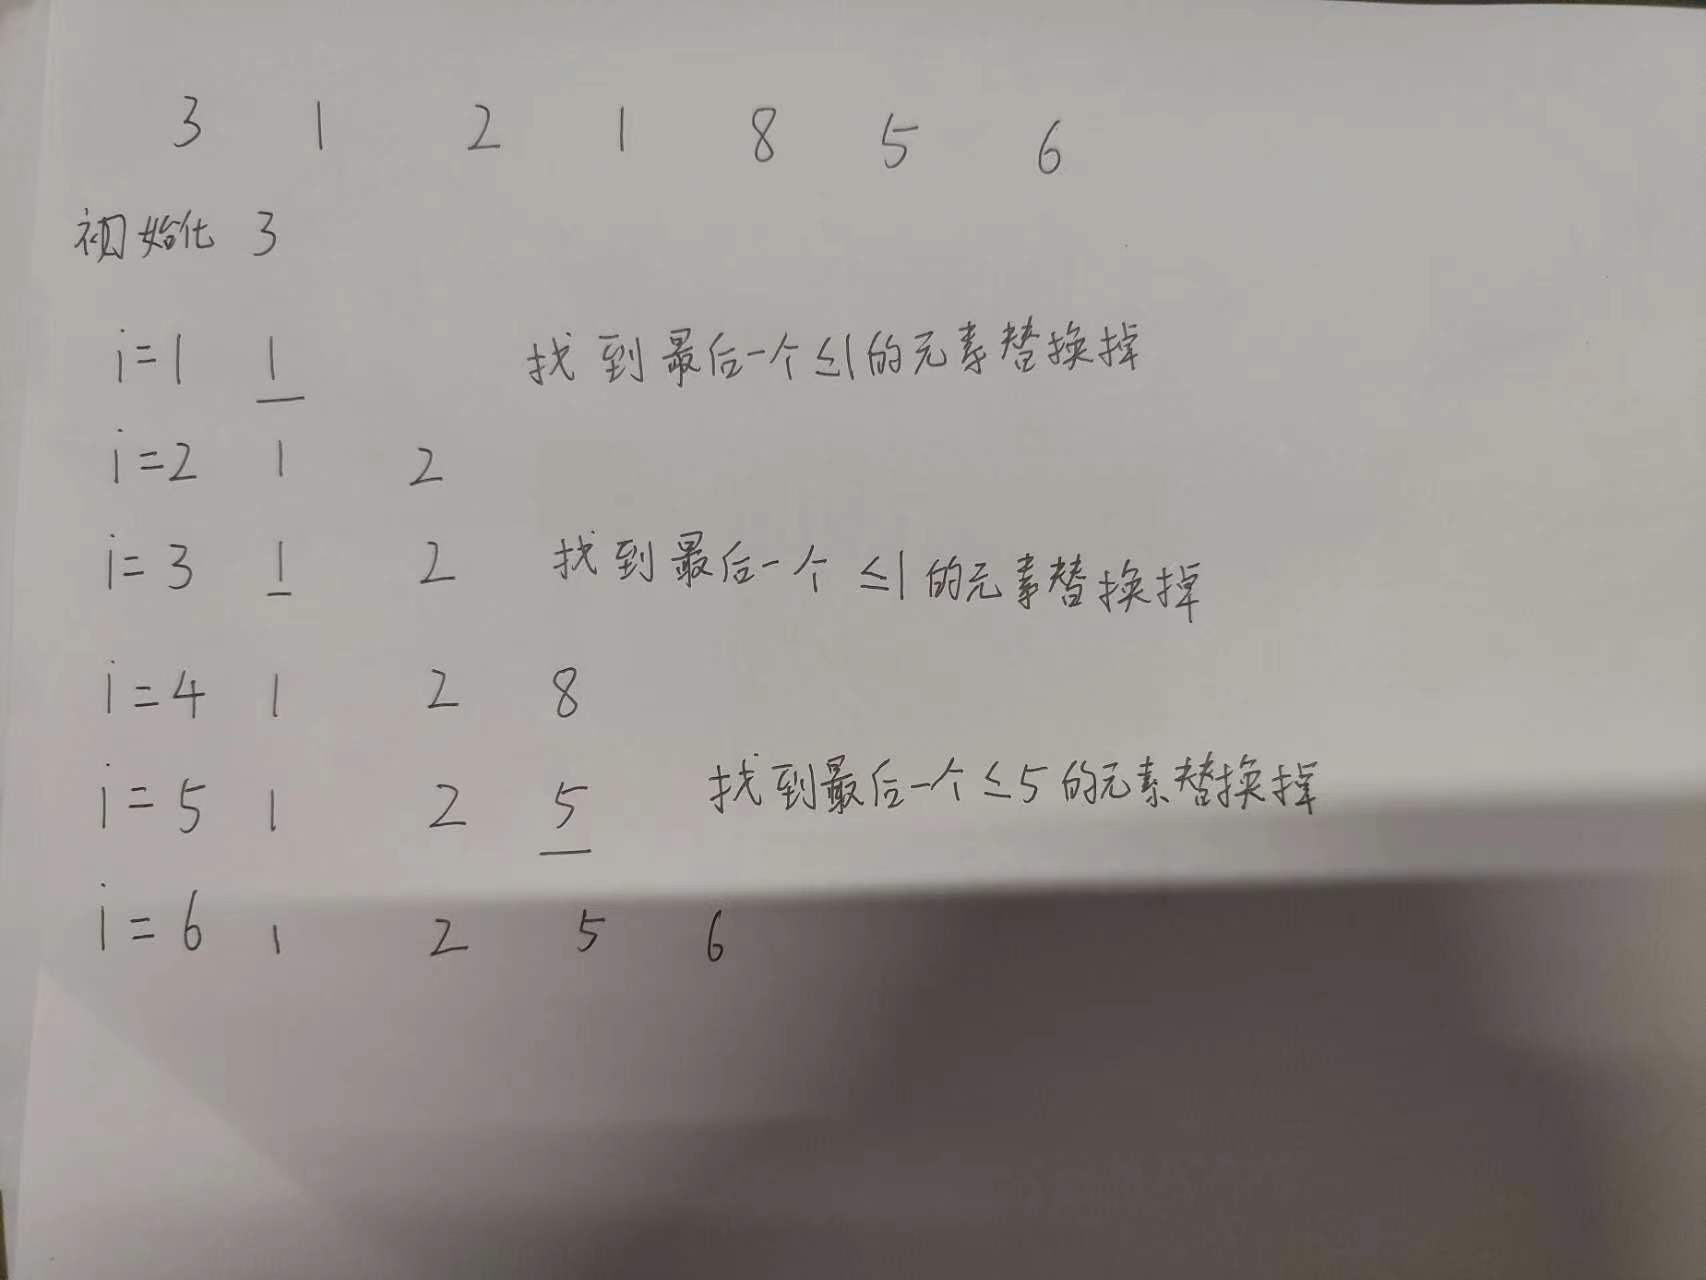 3 1 2 1 8 5 6
初始化 3
i=1 1 找到最后一个≤1的元素替换掉
i=2 1 2
i=3 1 2 找到最后一个≤1的元素替换掉
i=4 1 2 8
i=5 1 2 5 找到最后一个≤5的元素替换掉
i=6 1 2 5 6